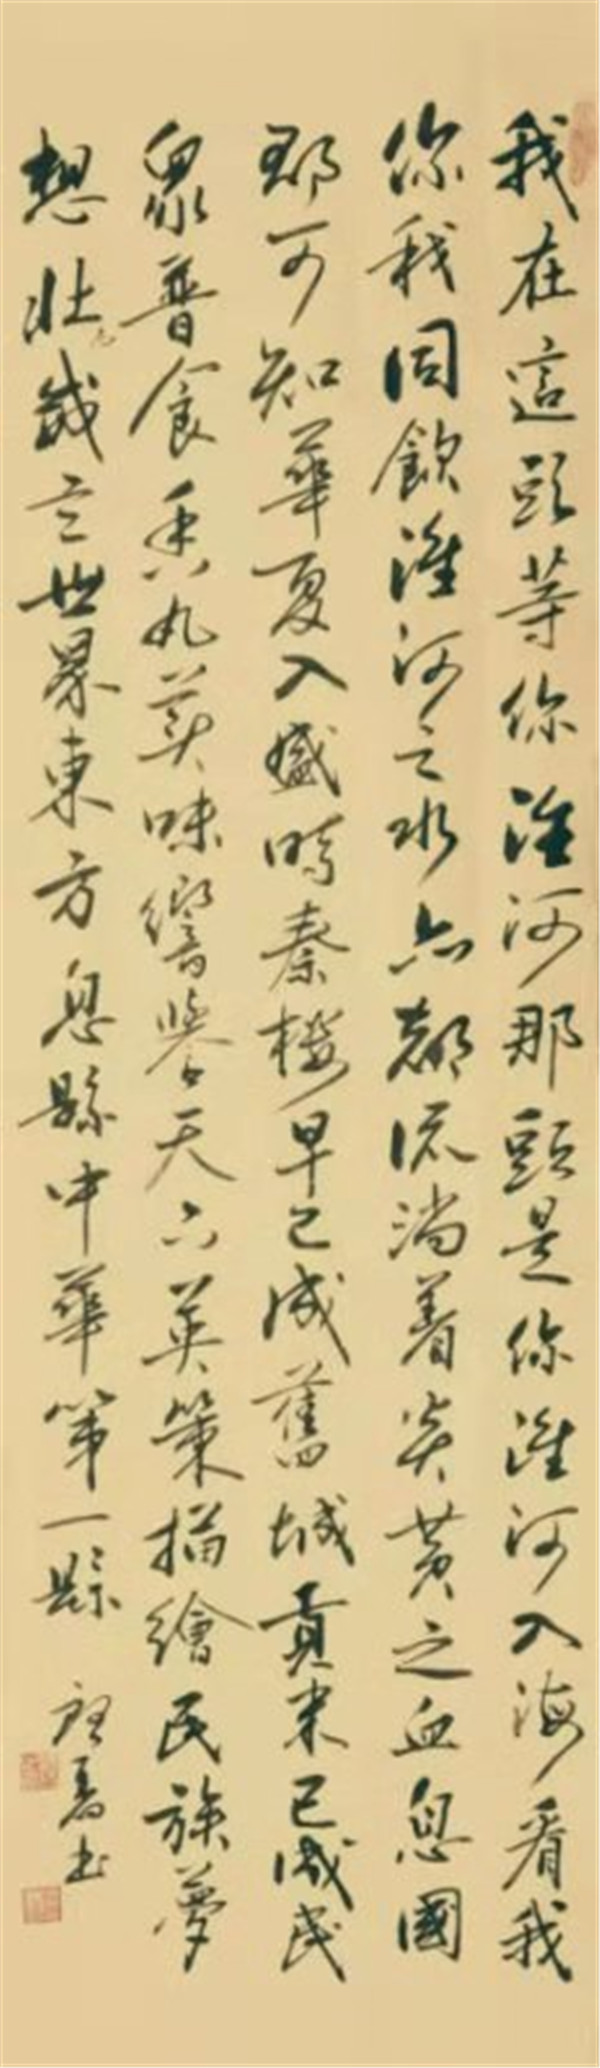 我在這頭等你淮河那頭是你淮河入海看我
你我同飲淮河之水六都流淌着炎黃之血息國
郡可知華夏入盛時秦樓早已成舊城貢米已成民
眾普食香丸美味響譽天六英策描繪民族夢
想壯哉立世界東方息縣中華第一縣
春書